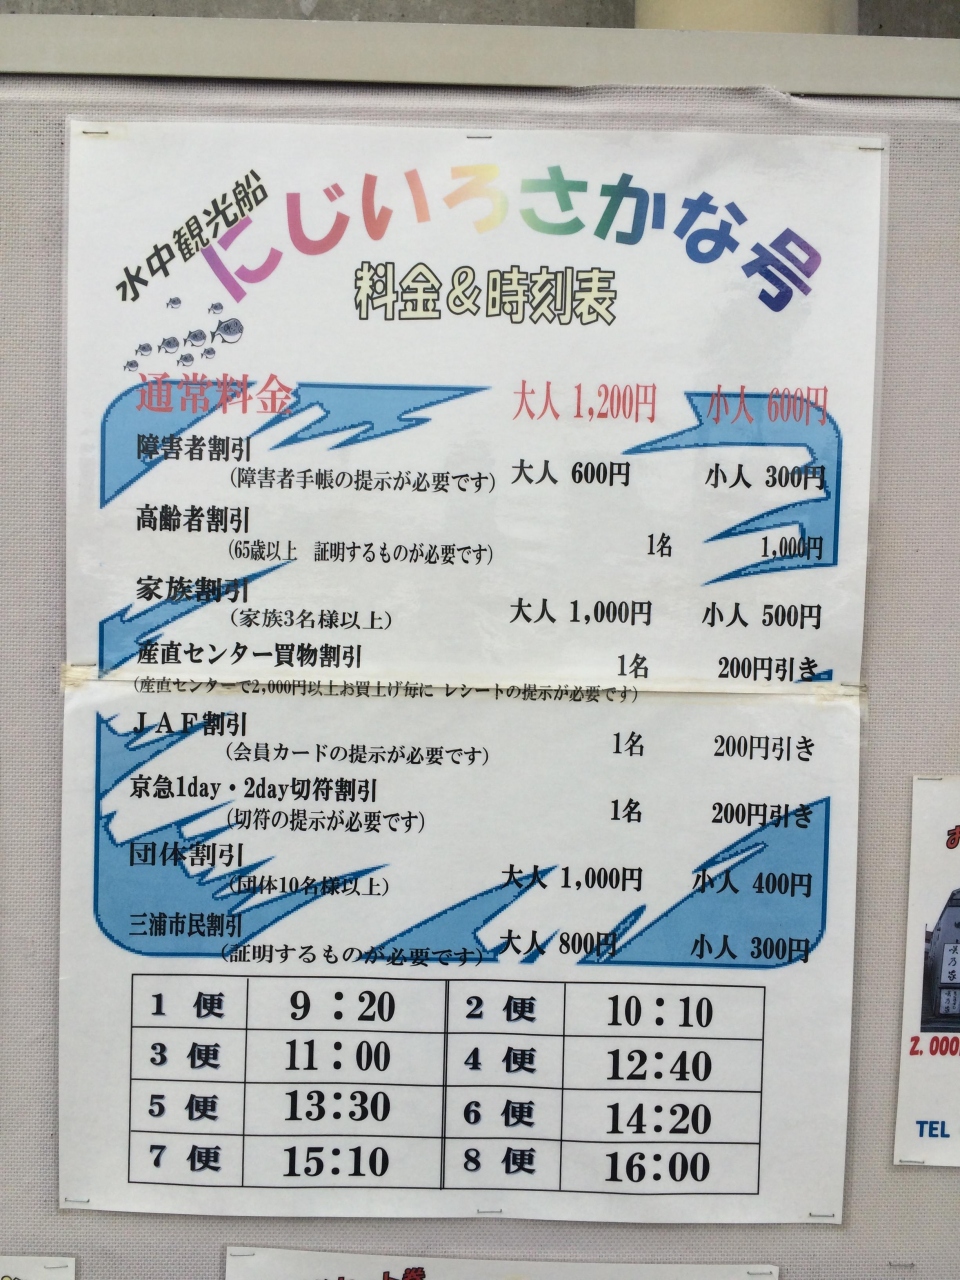 水中観光船
にじいろさかな号
料金&時刻表
通常料金 大人 1,200円 小人 600円
障害者割引
(障害者手帳の提示が必要です) 大人 600円 小人 300円
高齢者割引
(65歳以上 証明するものが必要です) 1名 1,000円
家族割引
(家族3名様以上) 大人 1,000円 小人 500円
産直センター買物割引 1名 200円引き
(産直センターで2,000円以上お買上げ毎に レシートの提示が必要です)
JAF割引
(会員カードの提示が必要です) 1名 200円引き
京急1day・2day切符割引
(切符の提示が必要です) 1名 200円引き
団体割引
(団体10名様以上) 大人 1,000円 小人 400円
三浦市民割引
(証明するものが必要です) 大人 800円 小人 300円
1便 9:20 2便 10:10
3便 11:00 4便 12:40
5便 13:30 6便 14:20
7便 15:10 8便 16:00
お
2.000
TEL